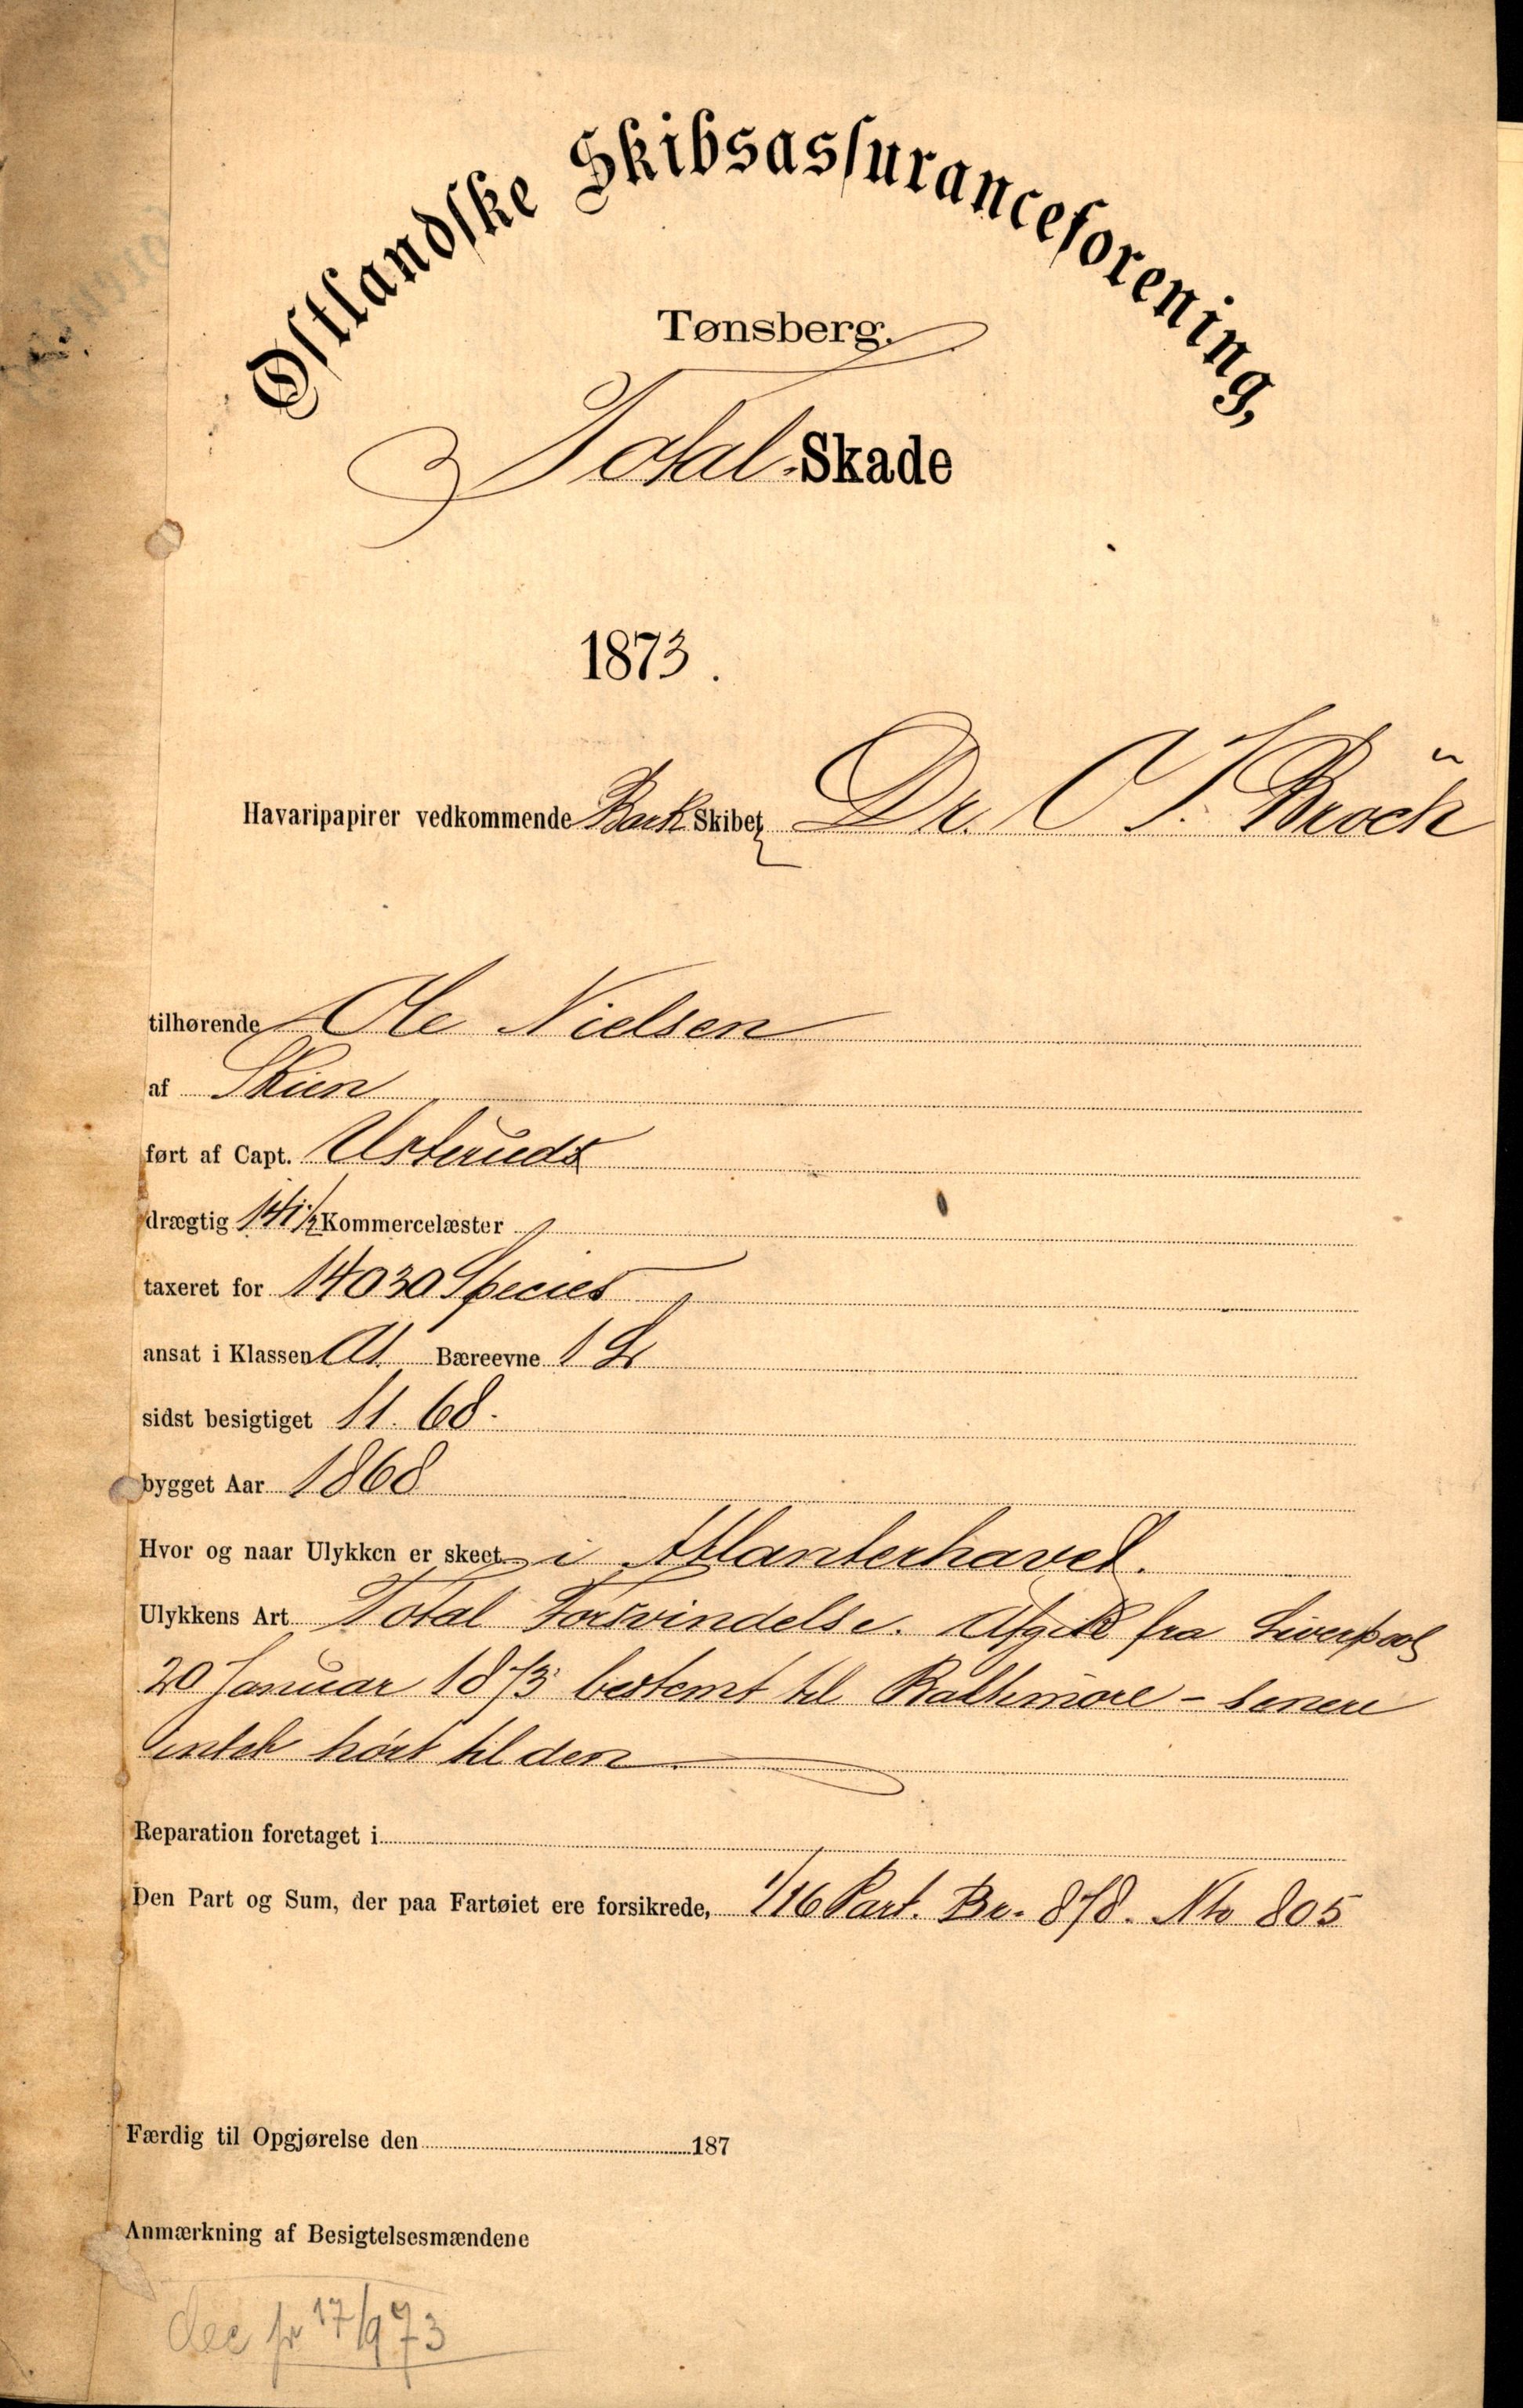 Østlandske Skibsassuranceforening,
Tønsberg.
Total-Skade
1873.
Havaripapirer vedkommende Bark Skibet Dr. O J. Broch
tilhørende Ole Nielsen
af Skien
ført af Capt. Usteruds
drægtig 141 1/2 Kommercelæster
taxeret for 14030 Species
ansat i Klassen A1. Bæreevne 1
sidst besigtiget 11. 68.
bygget Aar 1868
Hvor og naar Ulykken er skeet i Atlanterhavet.
Ulykkens Art Total Forsvindelse. Afgik fra Liverpool
20 Januar 1873 bestemt til Baltimore - senere
intet hørt til den.
Reparation foretaget i
Den Part og Sum, der paa Fartøiet ere forsikrede, 1/16 Part. Br. 878. Nto 805
Færdig til Opgjørelse den 187
Anmærkning af Besigtelsesmændene
17/9 73